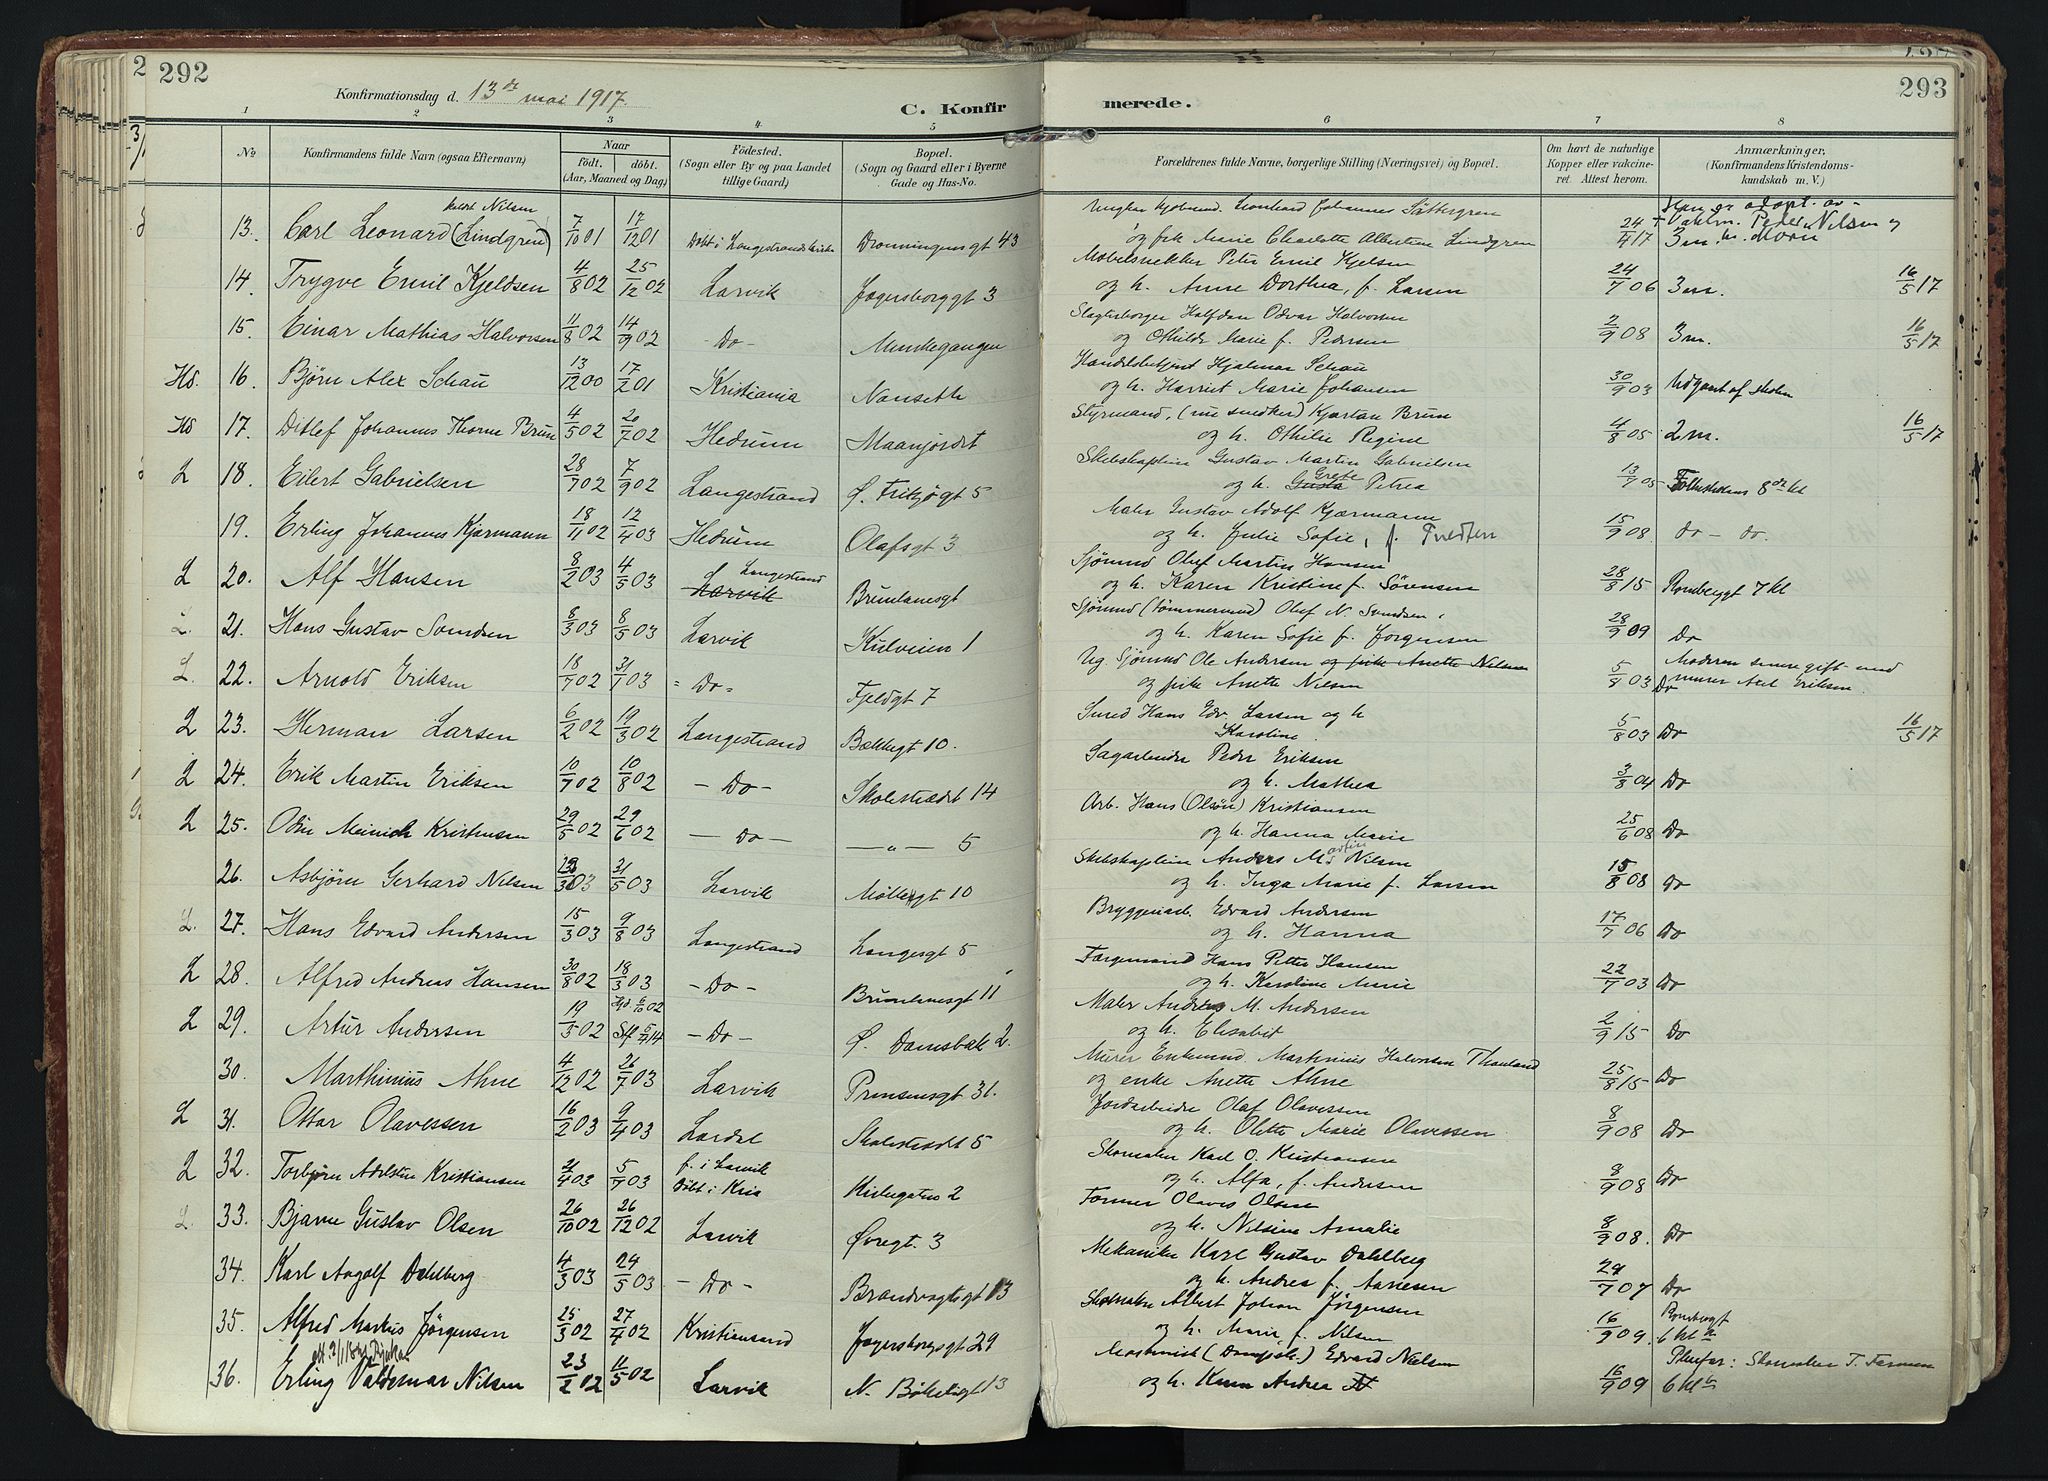 292
Konfirmationsdag d. 13de mai 1917.
C. Konfir
merede.
293
1 2 3 4 5 6 7 8
No
Konfirmandens fulde Navn (ogsaa Efternavn)
Naar
født. døbt.
(Aar, Maaned og Dag)
Fødested.
(Sogn eller By og paa Landet
tillige Gaard)
Bopæl.
(Sogn og Gaard eller i Byerne
Gade og Hus-No.
Forældrenes fulde Navne, borgerlige Stilling (Næringsvei) og Bopæl.
Om havt de naturlige
Kopper eller vakcine-
ret. Attest herom.
Anmærkninger.
(Konfirmandens Kristendoms-
kundskab m. V.)
kaldt Nilsen
13. Carl Leonard (Lindgren) 7/10 01 17/12 01 Døbt i Langestrands kirke Dronningensgt 43
Ungkar Leonhard Johannes Sättergren
og pike Marie Charlotte Albertine Lindgren 24/4 17 3 m.
Han er adopt. av
Peder Nilsen
14. Trygve Emil Kjeldsen 4/8 02 25/12 02 Larvik Jegersborggt 3
Møbelsnekker Peter Emil Kjelsen
og h. Anne Dorthea, f. Larsen 24/7 06 3 m. 16/5 17
15. Einar Mathias Halvorsen 11/8 02 14/9 02 Do- Munkegangen
Halfdan Odvar Halvorsen
og Othilde Marie f. Pedersen 2/9 08 3 m. 16/5 17
Hd. 16. Bjørn Alex Schau 13/12 00 17/2 01 Kristiania Nanseth
Handelsbetjent Hjalmar Schau
og h. Harriet Marie Johansen 30/9 03 Udgaat af skolen
Hd 17. Ditlef Johannes Thorne Brun 4/5 02 20/7 02 Hedrum Maanejordet
Styrmand, (nu snedker) Kjartan Brun
og h. Othilie Regine 4/8 05 2 m. 16/5 17
L 18. Eilert Gabrielsen 28/7 02 7/9 02 Langestrand Ø. Fritzøgt 5
Skibskaptein Gustav Martin Gabrielsen
og h. Gusta Grete Petrea 13/9 05 Folkeskolens 8de kl
19. Erling Johannes Kjærmann 18/11 02 12/4 03 Hedrum Olafsgt 3
Maler Gustav Adolf Kjærmann
og h. Julie Sofie, f. Tvedten 15/9 08 do - do.
L 20. Alf Hansen 8/2 03 4/5 03 Larvik Langestrand Brunlanesgt
Sjømnd Oluf Martin Hansen
og h. Karen Kristine f. Sørensen 28/8 15 Rombergt 7 kl
L. 21. Hans Gustav Svendsen 8/3 03 8/5 03 Larvik Kulveien 1
Sjømnd (tømmermnd) Oluf N. Svendsen,
og h. Karen Sofie f. Jørgensen 28/9 09 Do
L. 22. Arnold Eriksen 18/7 02 31/1 03 - Do - Fjeldgt 7
Ug. Sjømnd Ole Andersen og pike Anette Nilsen
og pike Anette Nilsen 5/8 03 Do
Moderen senere gift med
murer Axel Eriksen.
L 23. Herman Larsen 6/2 02 19/3 02 Langestrand Bækkegt 10.
Smed Hans Edv. Larsen og h
Karoline 5/8 03 Do 16/5 17
L 24. Erik Martin Eriksen 10/7 02 10/8 02 - Do - Skolestrædet 14
Sagarbeider Peder Eriksen
og h. Mathea 3/8 04 Do
L 25. Odin Meinich Kristensen 29/5 02 29/6 02 - Do - -"- 5
Arb. Hans (Olsøn) Kristiansen
og h. Hanna Marie 25/6 08 Do
26. Asbjørn Gerhard Nilsen 03 31/5 03 Larvik Møllegt 10
Skibskaptein Anders Martin Nilsen
og h. Inga Marie f. Larsen 15/8 08 do
L. 27. Hans Edvard Andersen 15/3 03 9/8 03 Langestrand Langesgt 5
Bryggeriarb. Edvard Andersen
og h. Hanna 17/7 06 Do
L 28. Alfred Andreas Hansen 30/8 02 18/3 03 - Do - Brunlanesgt 11
Færgemand Hans Petter Hansen
og h. Karoline Marie 22/7 03 Do
L 29. Artur Andersen 19/3 02 Hjd. 6/10 02 Stf 5/4 14 - Do - Ø. Damsbak 2.
Maler Andreas M. Andersen
og h. Elisabet 2/9 15 Do
30. Marthinius Ahne 4/12 02 26/7 03 Larvik Prinsensgt 31.
Murer Enkemnd Martinius Halvorsen Thauland
og enke Anette Ahne 25/8 15 Do
L 31. Ottar Olavessen 16/2 03 9/4 03 Lardal Skolestrædet 5
Jordarbeider Olaf Olavessen
og h. Olette Marie Olavessen 8/9 08 Do
L 32. Torbjørn Adelsten Kristiansen 2/4 03 5/7 03 f. i Larvik Døbt i Kria Kirkegaten 2
Skomaker Karl O. Kristiansen
og h. Alfa, f. Andersen 8/9 08 Do
L. 33. Bjarne Gustav Olsen 26/10 02 26/12 02 Larvik Øvregt. 3
Former Olaves Olsen
og h. Nilsine Amalie 8/9 08. Do
34. Karl Angolf Dahlberg 4/3 03 24/5 03 - Do - Brandvagtsgt 13
Mekaniker Karl Gustav Dahlberg
og h. Andrea f. Aarnesen 29/7 07 Do
35. Alfred Markus Jörgensen 25/3 02 27/4 02 Kristiansand Jegersborgsgt 29
Skomaker Albert Johan Jörgensen
og h. Marie, f. Nilsen 16/9 09. Rombergt
6 kl
36. Erling Valdemar Nilsen 23/2 02 11/5 02 Larvik N. Bøkeligt 13
Maskinist (Dampsk.) Edvard Nielsen
og h. Andrea 16/9 09 6 kl
Pleiefar: Skomaker T. Farmen